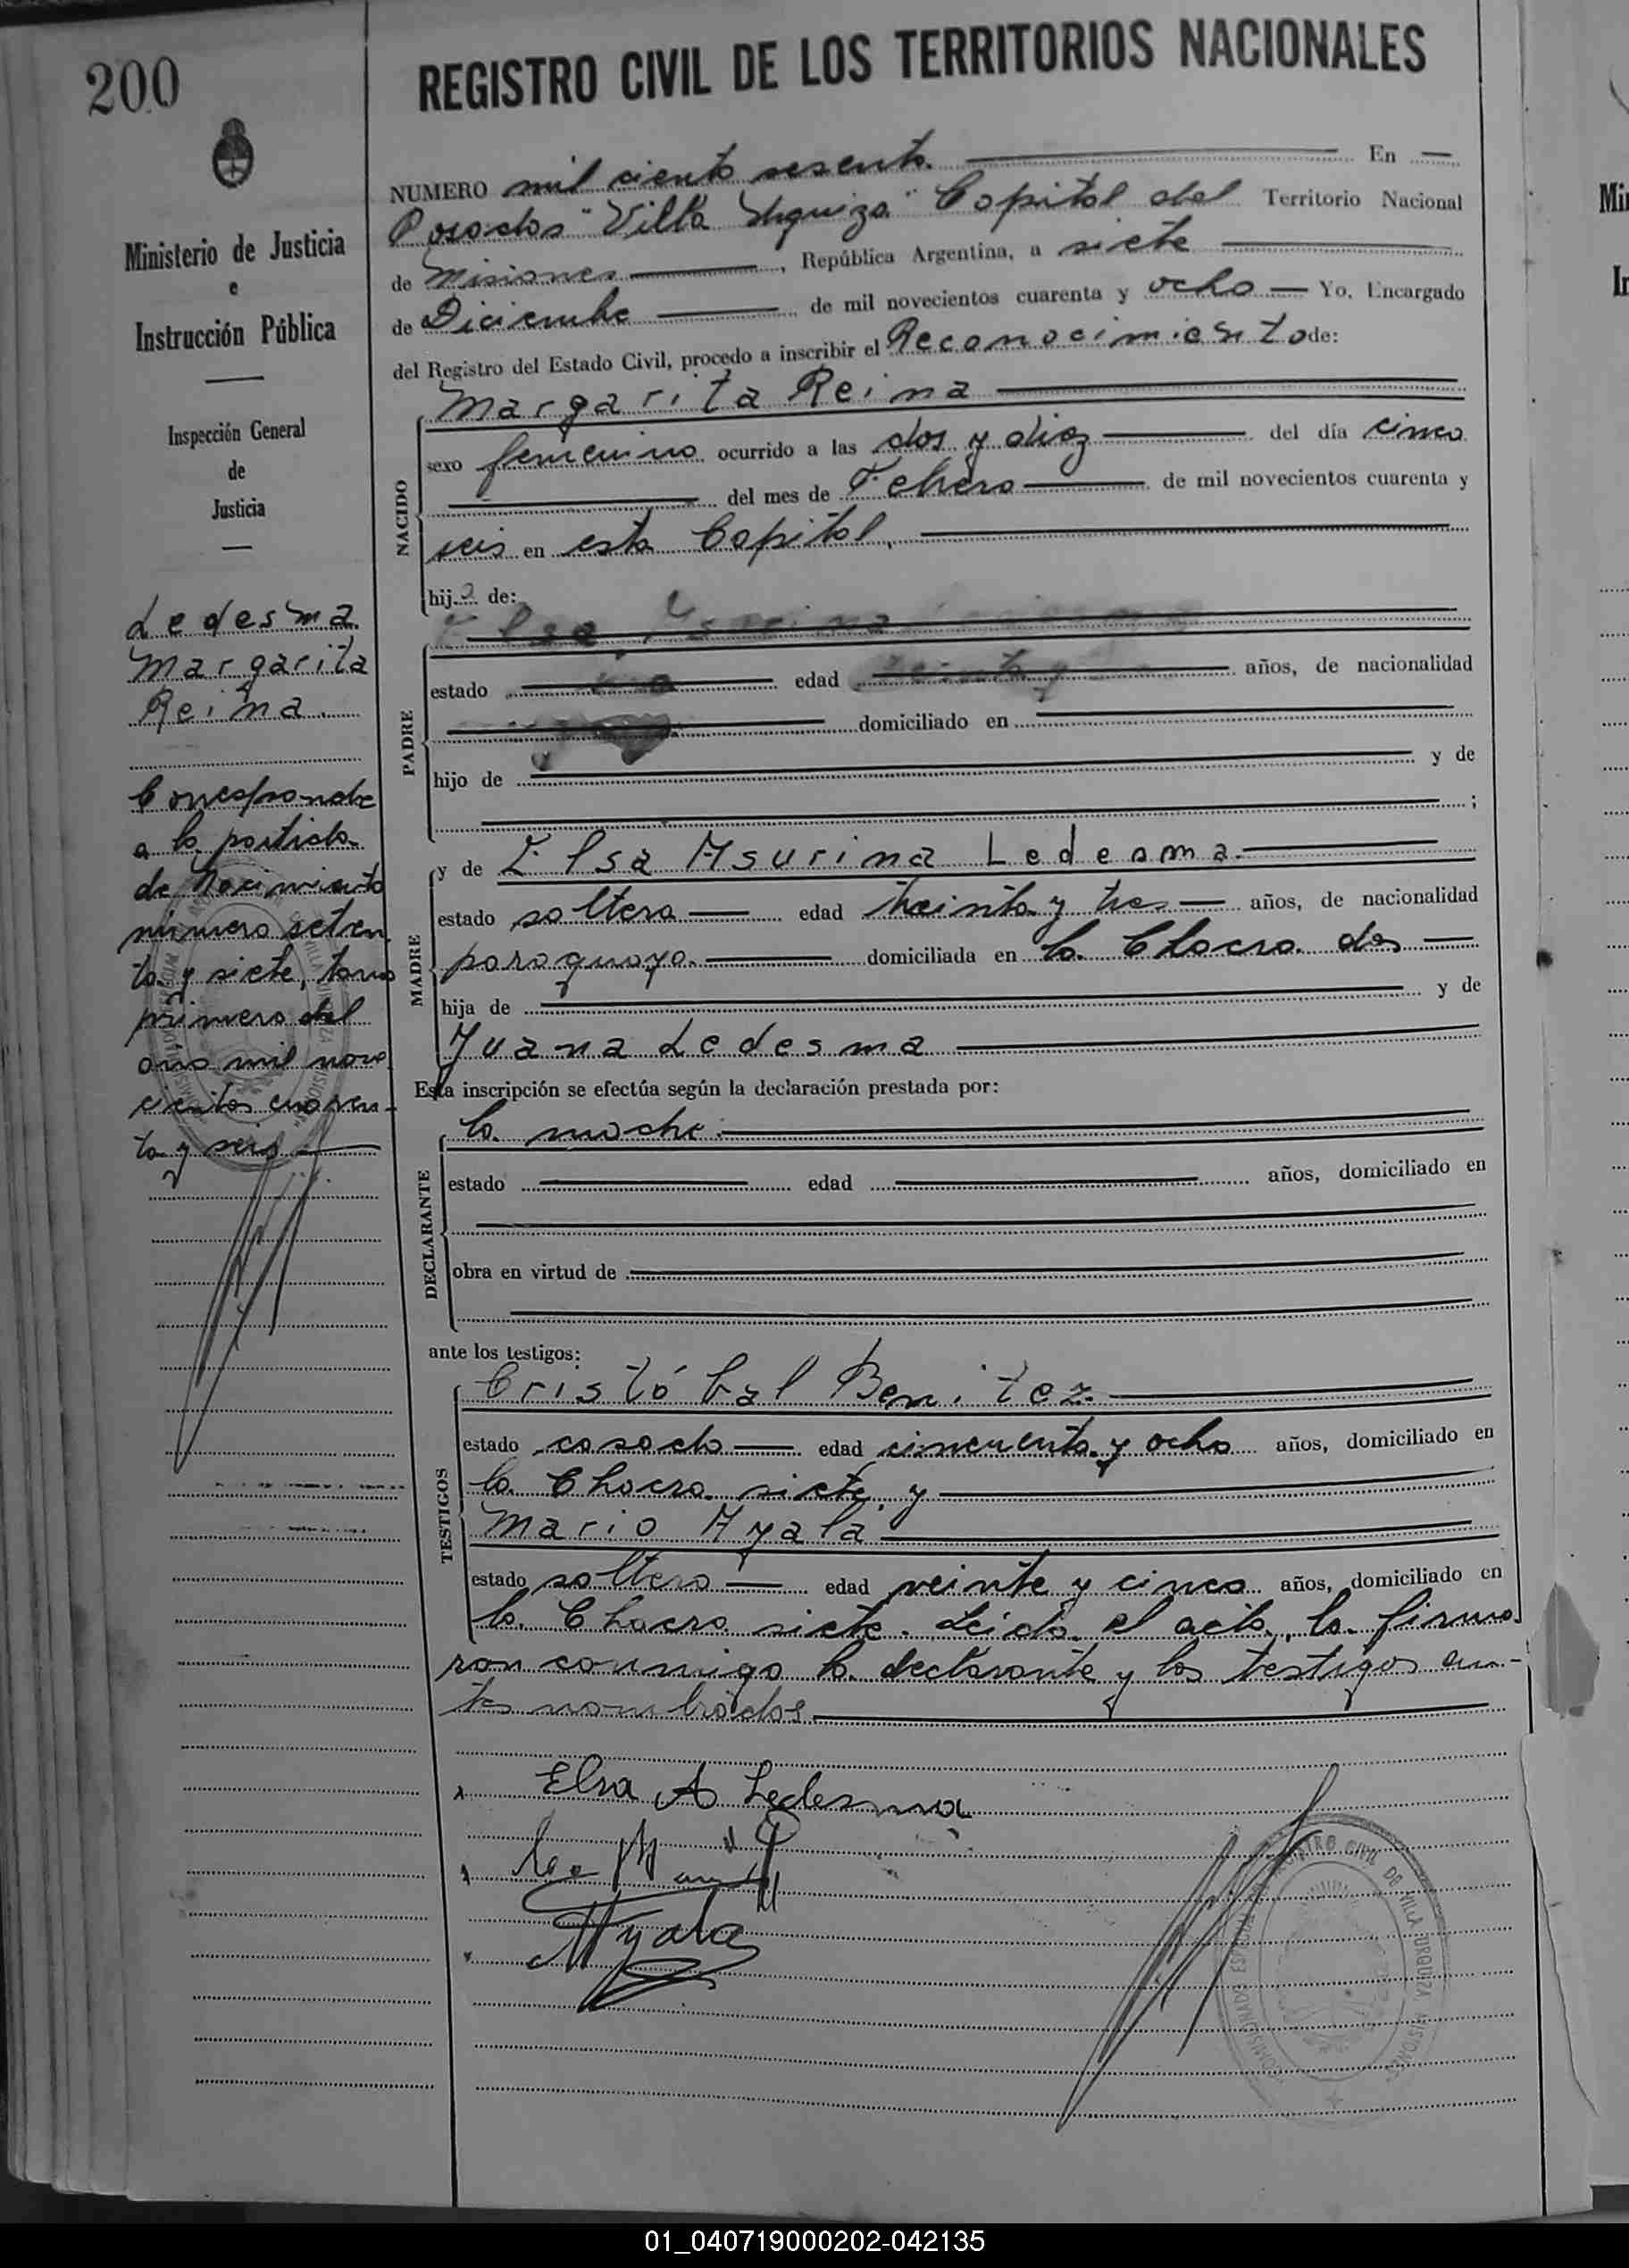 200
REGISTRO CIVIL DE LOS TERRITORIOS NACIONALES
Ministerio de Justicia
e
Instrucción Pública
Inspección General
de
Justicia
Ledesma
Margarita
Reina.
Corresponde
a la partida
de Nacimiento
número seten
ta y siete, tomo
primero del
año mil nove
cientos cuaren-
ta y seis
NUMERO mil ciento sesenta. En
Posadas "Villa Urquiza" Capital del Territorio Nacional
de Misiones, República Argentina, a siete
de Diciembre de mil novecientos cuarenta y ocho Yo, Encargado
del Registro del Estado Civil, procedo a inscribir el Reconocimiento de:
NACIDO
Margarita Reina
sexo femenino ocurrido a las dos y diez del día cinco
del mes de Febrero de mil novecientos cuarenta y
seis en esta Capital,
hija de:
PADRE
Elsa Asurina
estado edad años, de nacionalidad
domiciliado en
hijo de y de
;
MADRE
y de Elsa Asurina Ledesma.
estado soltera edad treinta y tres años, de nacionalidad
paraguaya. domiciliada en la Chacra dos
hija de y de
Juana Ledesma
Esta inscripción se efectúa según la declaración prestada por:
DECLARANTE
la madre.
estado edad años, domiciliado en
obra en virtud de
ante los testigos:
TESTIGOS
Cristóbal Benitez.
estado casado edad cincuenta y ocho años, domiciliado en
la Chacra siete, y
Mario Ayala
estado soltero edad veinte y cinco años, domiciliado en
la Chacra siete. Leída el acta, la firma
ron conmigo la declarante y los testigos an-
tes nombrados.
Elsa A Ledesma
Ayala
REGISTRO CIVIL DE VILLA URQUIZA MISIONES
01_040719000202-042135